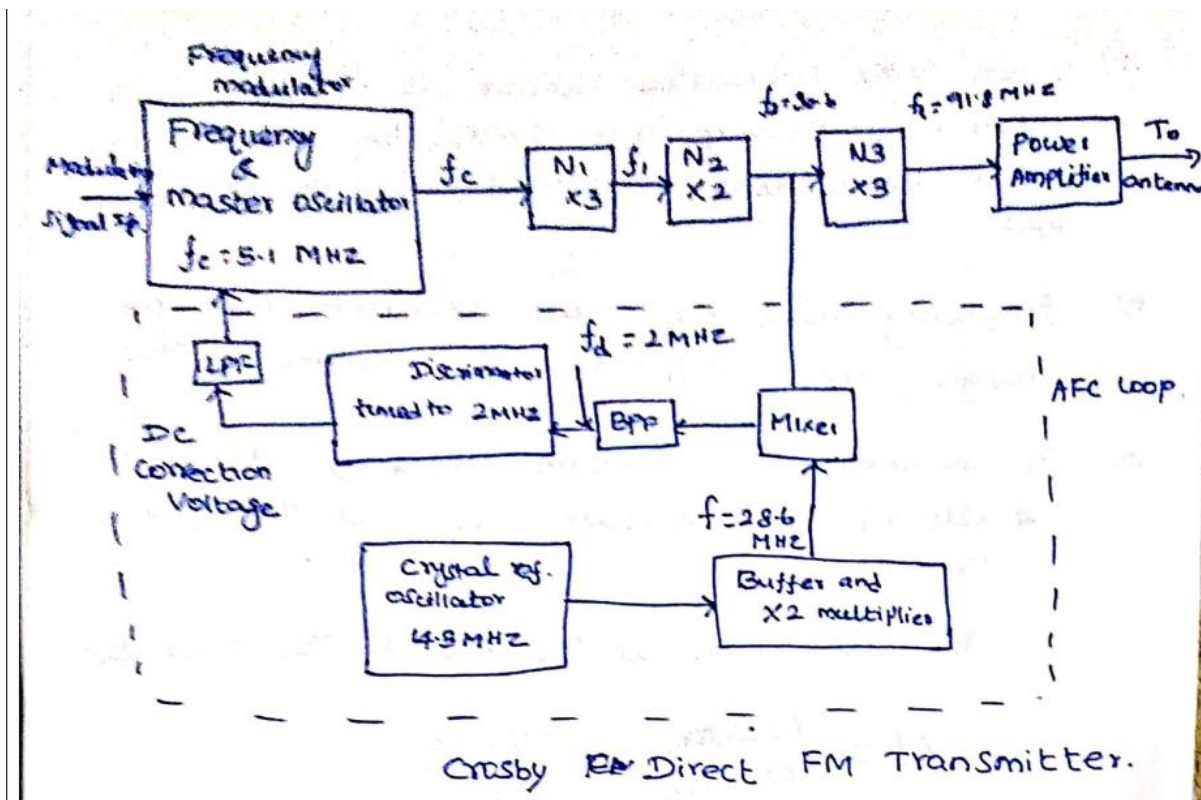 Frequency
modulator
Frequency
&
master oscillator
fc = 5.1 MHZ
Modulating
signal i/p.
fc
N1
x3
f1
N2
x2
f2=30.6
N3
x3
ft=91.8 MHZ
Power
Amplifier
To
antenna
LPF
DC
Correction
Voltage
Discriminator
tuned to 2MHZ
fd = 2 MHZ
BPF
Mixer
AFC Loop.
f=28.6
MHZ
Crystal ref.
oscillator
14.3 MHZ
Buffer and
X2 multiplier
Crosby Direct FM Transmitter.